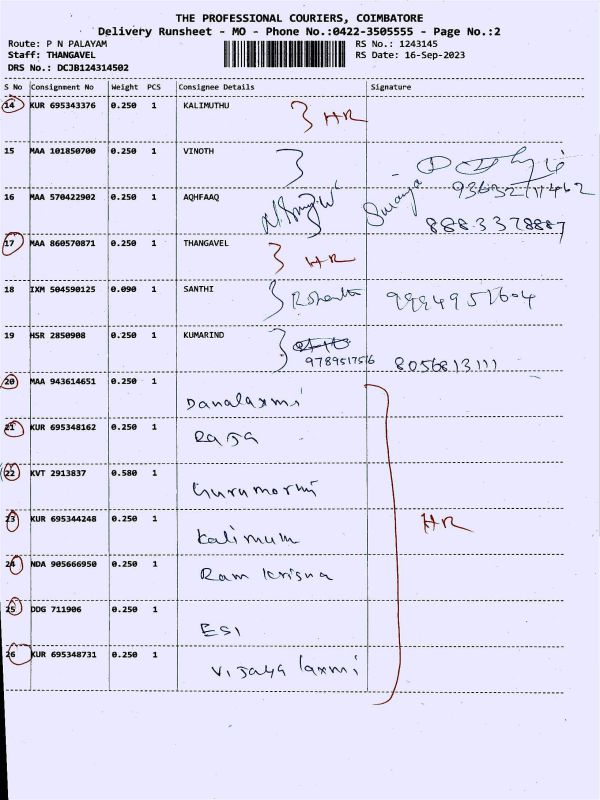 THE PROFESSIONAL COURIERS, COIMBATORE
Delivery Runsheet - MO - Phone No.:0422-3505555 - Page No.:2
Route: P N PALAYAM RS No.: 1243145
Staff: THANGAVEL RS Date: 16-Sep-2023
DRS No.: DCJB124314502
S No Consignment No Weight PCS Consignee Details Signature
14 KUR 695343376 0.250 1 KALIMUTHU HR
15 MAA 101850700 0.250 1 VINOTH
9363271462
16 MAA 570422902 0.250 1 AQHFAAQ
8883378887
17 MAA 860570871 0.250 1 THANGAVEL HR
18 IXM 504590125 0.090 1 SANTHI 9994951604
19 HSR 2850908 0.250 1 KUMARIND
9789517516 8056813111
20 MAA 943614651 0.250 1
Danalaxmi
21 KUR 695348162 0.250 1
Raja
22 KVT 2913837 0.580 1
Gurumorthi
23 KUR 695344248 0.250 1 HR
Kalimum
24 NDA 905666950 0.250 1
Ram Krisna
25 DDG 711906 0.250 1
ESI
26 KUR 695348731 0.250 1
Vijaya laxmi